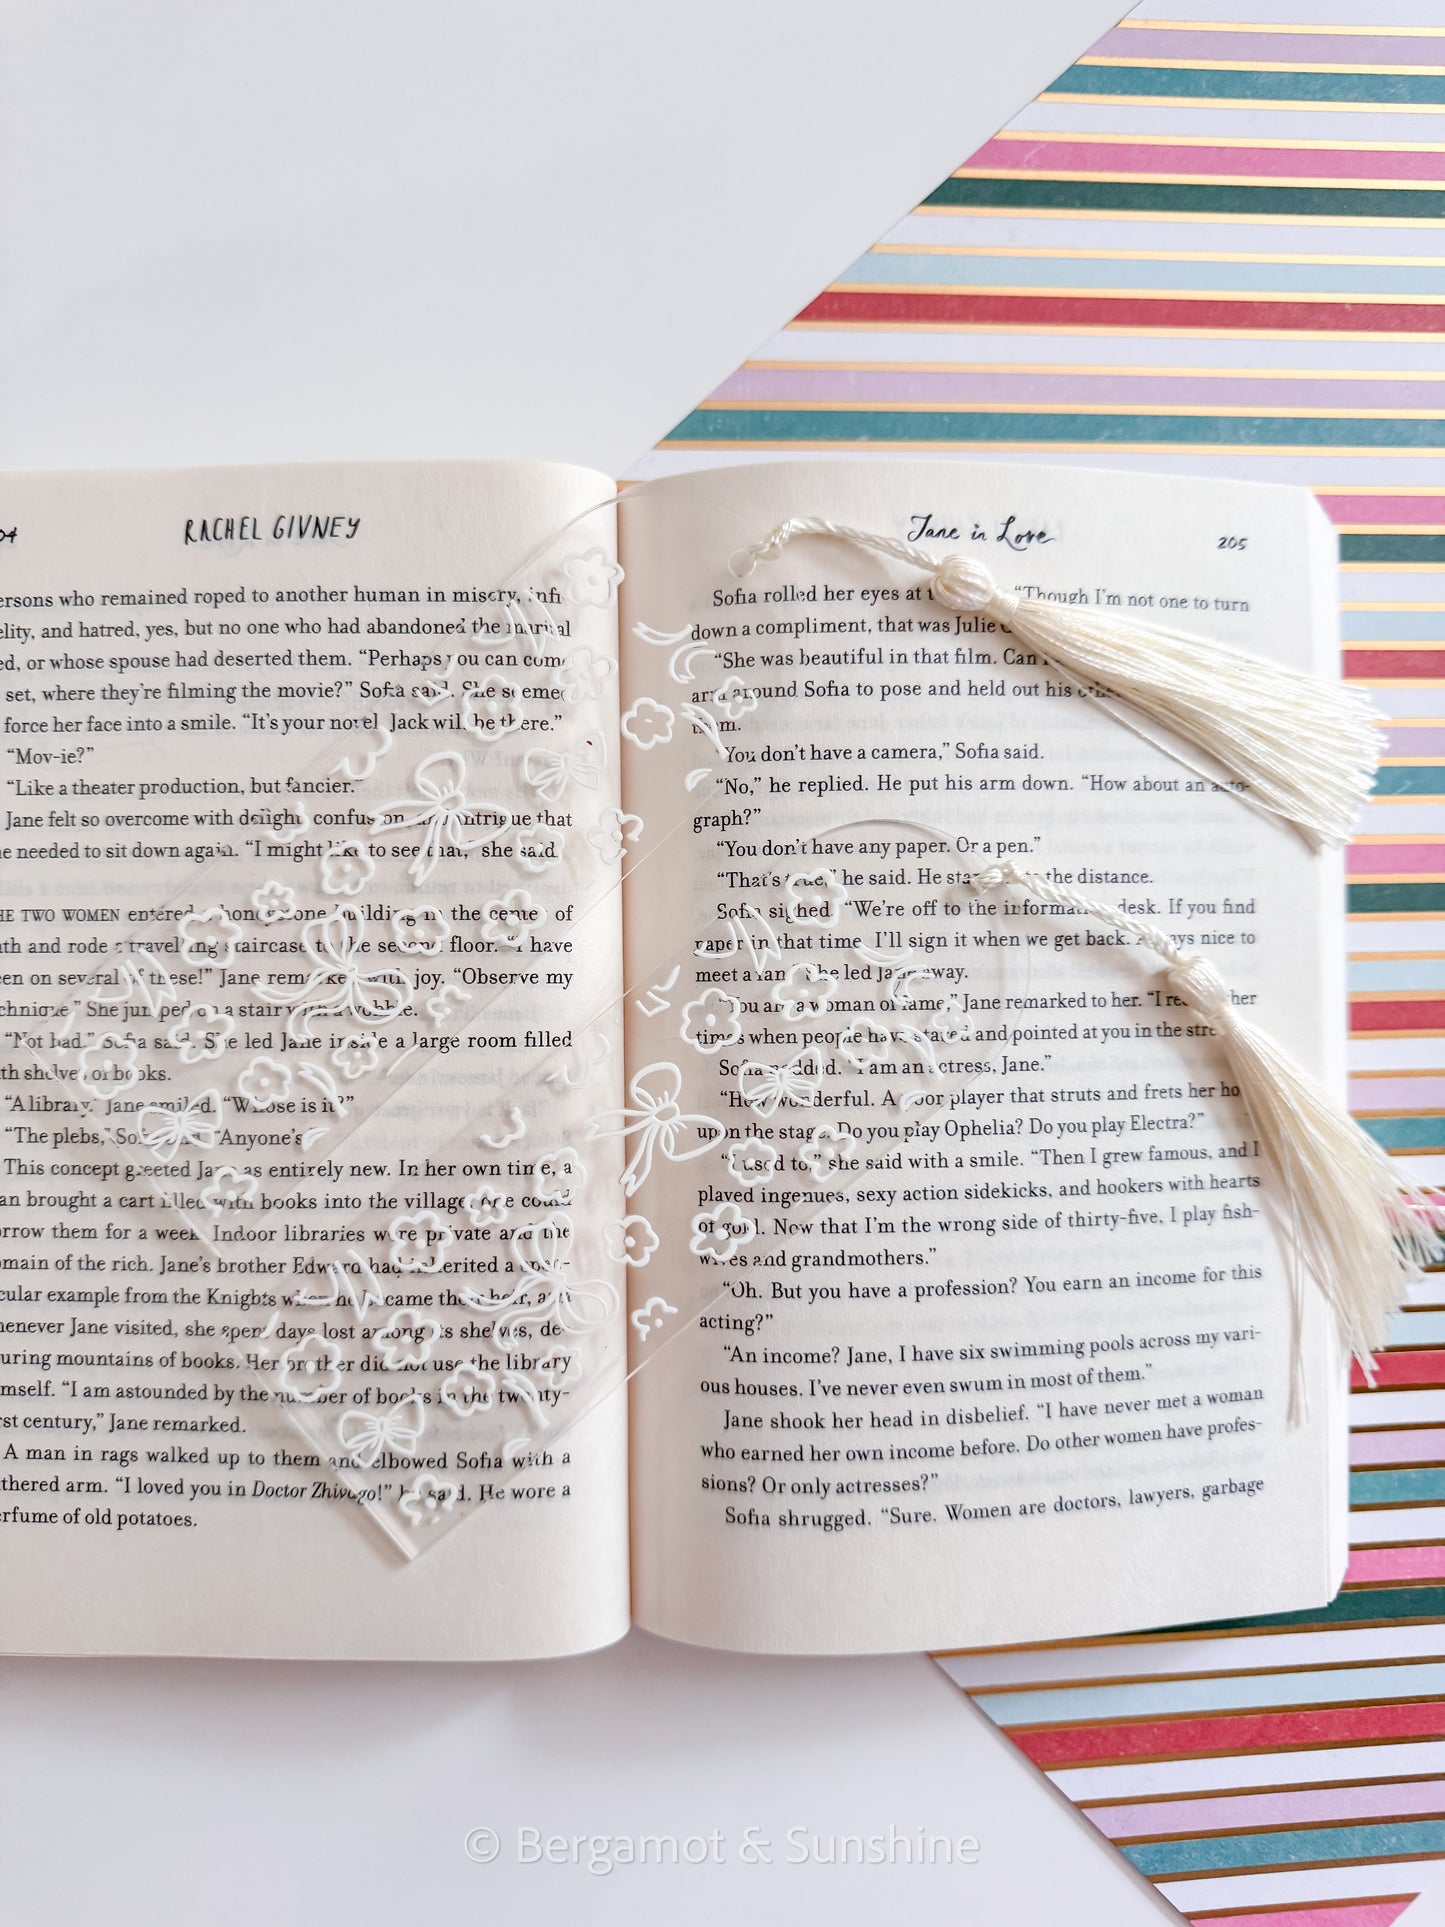 04
RACHEL GIVNEY
ersons who remained roped to another human in misery, infi-
elity, and hatred, yes, but no one who had abandoned the marital
ed, or whose spouse had deserted them. “Perhaps you can come
set, where they’re filming the movie?” Sofia said. She seemed
force her face into a smile. “It’s your novel, Jack will be there.”
“Mov-ie?”
“Like a theater production, but fancier.”
Jane felt so overcome with delight, confusion, and intrigue that
he needed to sit down again. “I might like to see that,” she said.
HE TWO WOMEN entered a honeystone building in the center of
ath and rode a travelling staircase to the second floor. “I have
een on several of these!” Jane remarked with joy. “Observe my
chnique.” She jumped on a stair with a wobble.
“Not bad.” Sofia said. She led Jane inside a large room filled
th shelves of books.
“A library.” Jane smiled. “Whose is it?”
“The plebs,” Sofia said. “Anyone’s.”
This concept greeted Jane as entirely new. In her own time, a
an brought a cart filled with books into the village; one could
orrow them for a week. Indoor libraries were private and the
omain of the rich. Jane’s brother Edward had inherited a spec-
cular example from the Knights when he became their heir, and
henever Jane visited, she spent days lost among its shelves, de-
uring mountains of books. Her brother did not use the library
mself. “I am astounded by the number of books in the twenty-
rst century,” Jane remarked.
A man in rags walked up to them and elbowed Sofia with a
thered arm. “I loved you in Doctor Zhivago!” he said. He wore a
erfume of old potatoes.
Jane in Love
205
Sofia rolled her eyes at “Though I’m not one to turn
down a compliment, that was Julie
“She was beautiful in that film. Can
arm around Sofia to pose and held out his other
them.
“You don’t have a camera,” Sofia said.
“No,” he replied. He put his arm down. “How about an auto-
graph?”
“You don’t have any paper. Or a pen.”
“That’s true,” he said. He stared into the distance.
Sofia sighed. “We’re off to the information desk. If you find
paper in that time, I’ll sign it when we get back. Always nice to
meet a fan.” She led Jane away.
“You are a woman of fame,” Jane remarked to her. “I recall other
times when people have stared and pointed at you in the street.”
Sofia nodded. “I am an actress, Jane.”
“How wonderful. A poor player that struts and frets her hour
upon the stage. Do you play Ophelia? Do you play Electra?”
“I used to,” she said with a smile. “Then I grew famous, and I
played ingenues, sexy action sidekicks, and hookers with hearts
of gold. Now that I’m the wrong side of thirty-five, I play fish-
wives and grandmothers.”
“Oh. But you have a profession? You earn an income for this
acting?”
“An income? Jane, I have six swimming pools across my vari-
ous houses. I’ve never even swum in most of them.”
Jane shook her head in disbelief. “I have never met a woman
who earned her own income before. Do other women have profes-
sions? Or only actresses?”
Sofia shrugged. “Sure. Women are doctors, lawyers, garbage
© Bergamot & Sunshine